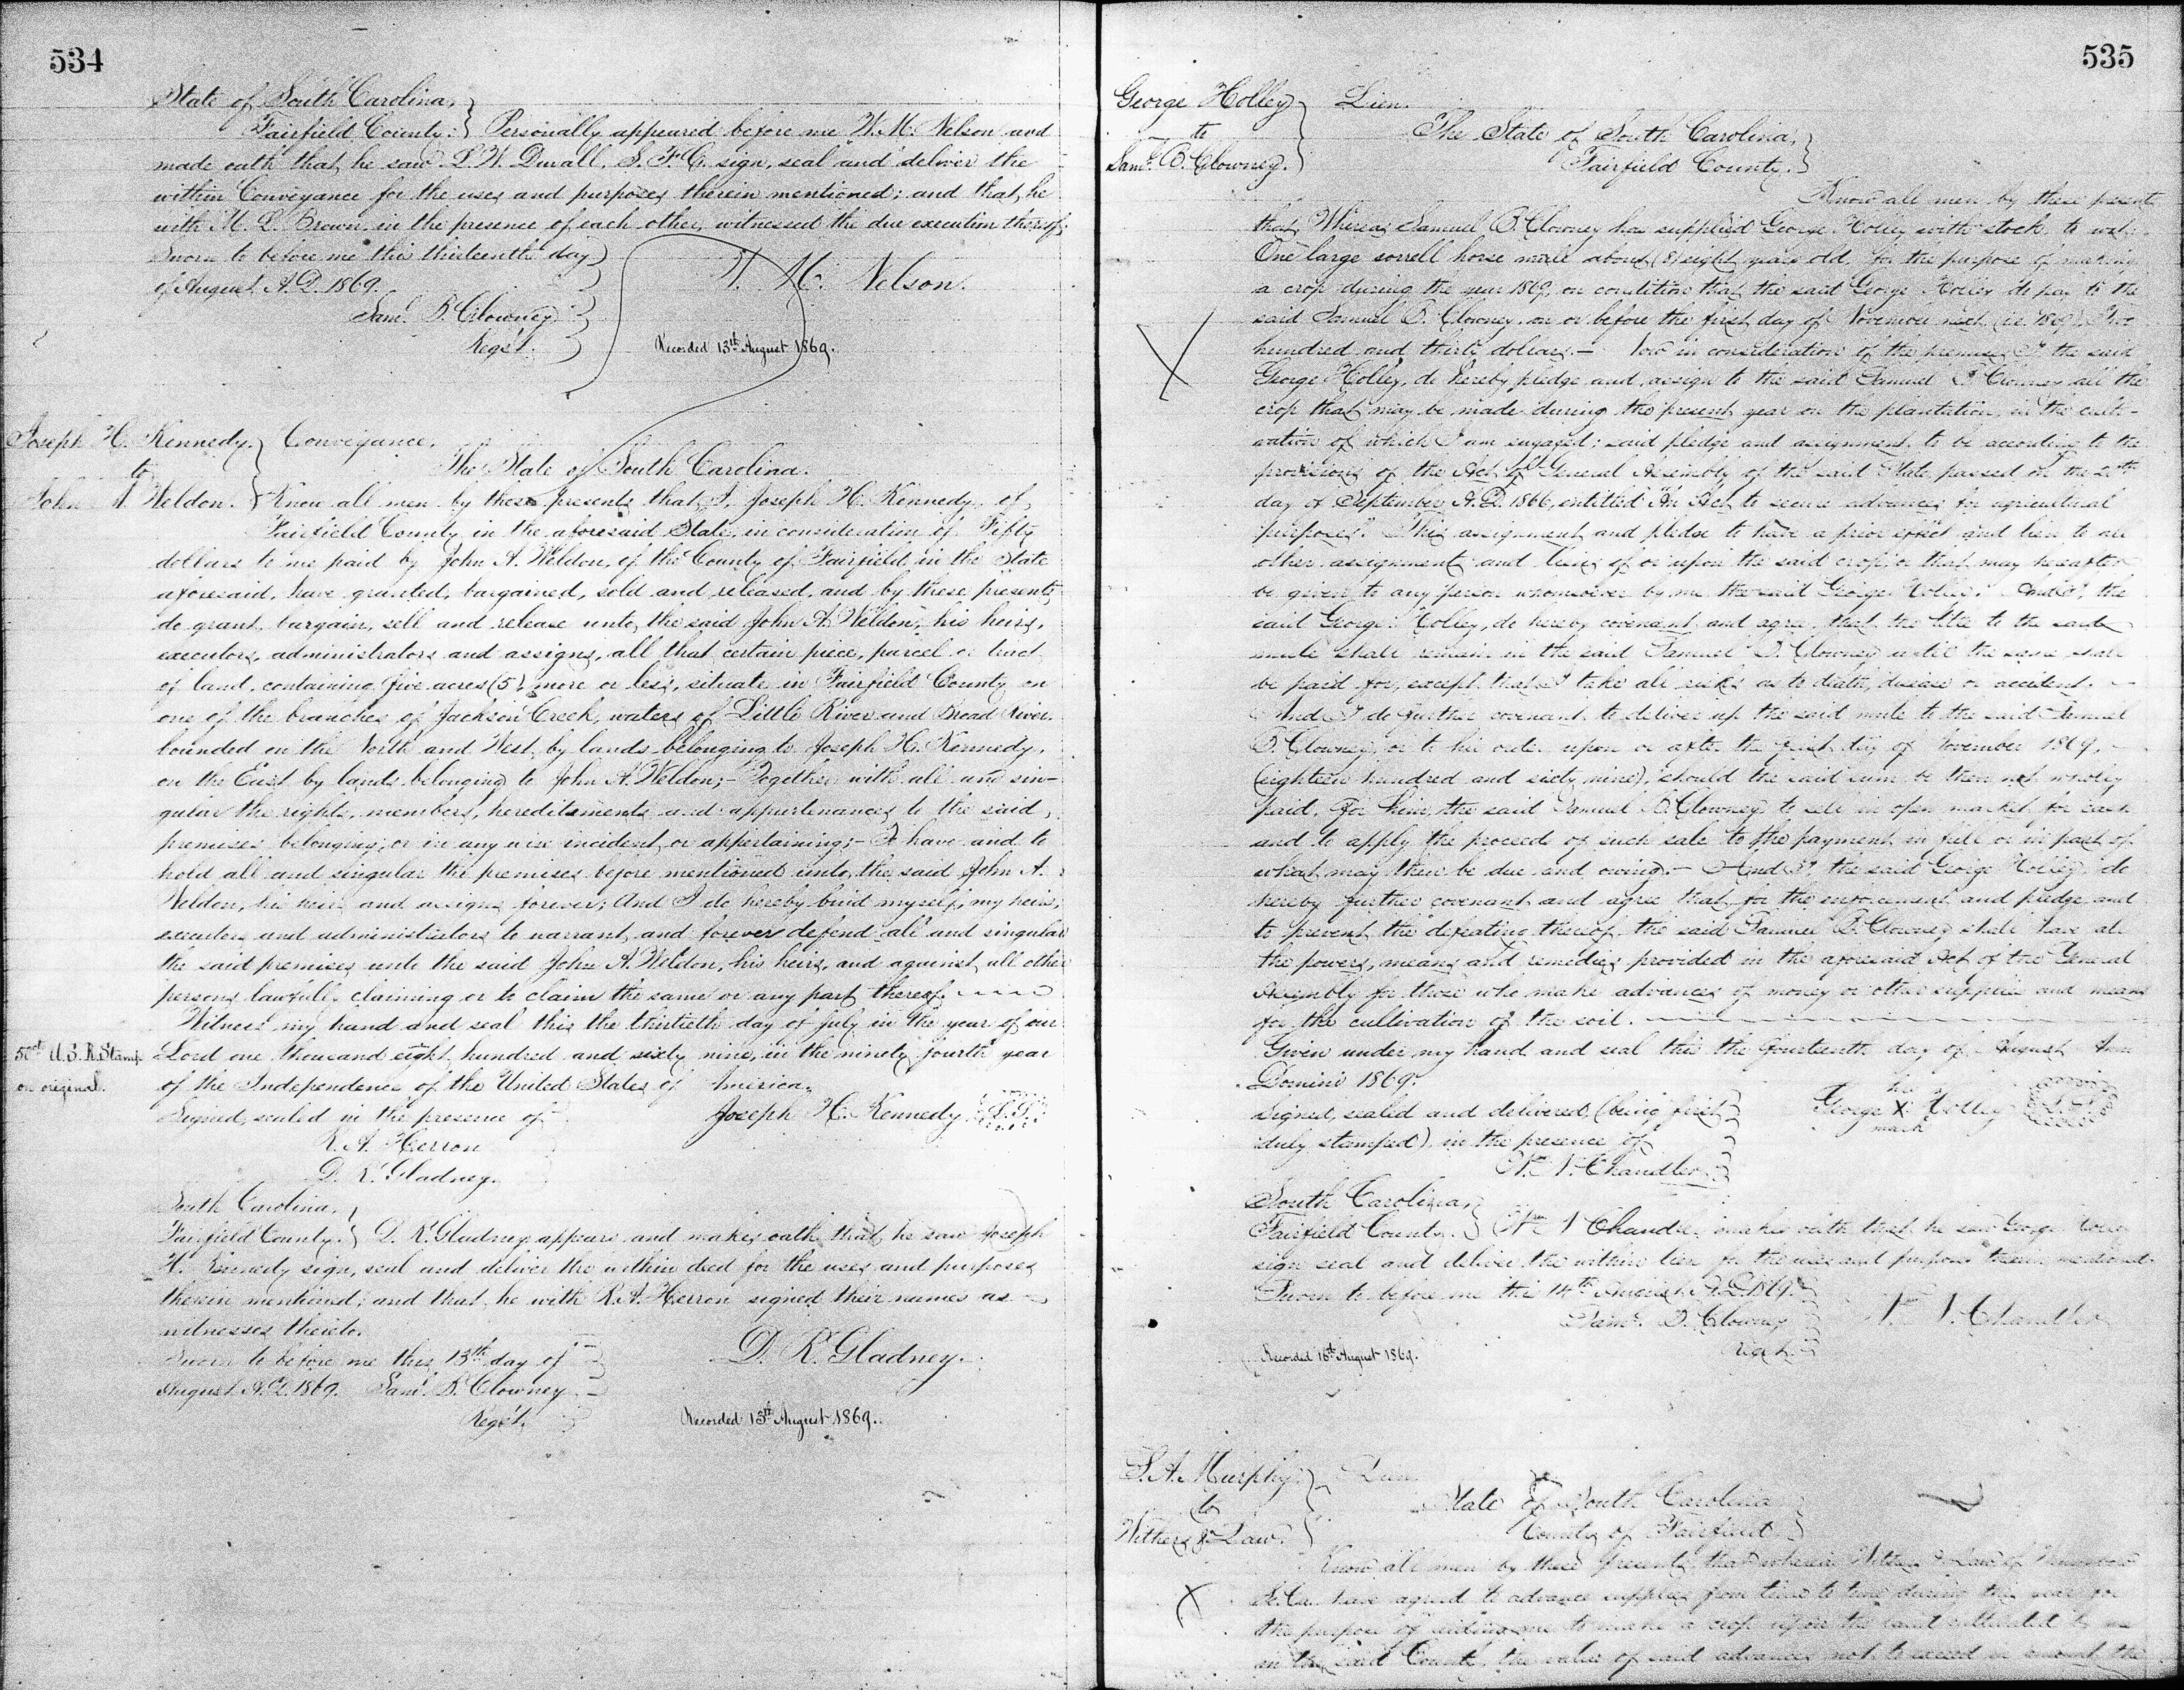 534
State of South Carolina,
Fairfield County. Personally appeared before me W. M. Nelson and
made oath that he saw L. W. Duvall, S. F. C. sign, seal and deliver the
within Conveyance for the uses and purposes therein mentioned; and that he
with M. L. Brown in the presence of each other, witnessed the due execution thereof.
Sworn to before me this thirteenth day
of August A.D. 1869.
M. Nelson.
Saml. B. Clowney
Regst.
Recorded 13th August 1869.
Joseph H. Kennedy. Conveyance.
to
The State of South Carolina.
John A. Weldon. Know all men by these presents that I, Joseph H. Kennedy, of
Fairfield County in the aforesaid State, in consideration of Fifty
dollars to me paid by John A. Weldon, of the County of Fairfield in the State
aforesaid, have granted, bargained, sold and released, and by these presents
do grant, bargain, sell and release unto the said John A. Weldon, his heirs,
executors, administrators and assigns, all that certain piece, parcel or tract
of land, containing five acres (5) more or less, situate in Fairfield County on
one of the branches of Jackson Creek, waters of Little River and Broad River.
bounded on the North and West by lands belonging to Joseph H. Kennedy,
on the East by lands belonging to John A. Weldon;- Together with all and sin-
gular the rights, members, hereditaments and appurtenances to the said
premises belonging, or in any wise incident or appertaining;- To have and to
hold all and singular the premises before mentioned unto the said John A.
Weldon, his heirs and assigns forever; And I do hereby bind myself, my heirs,
executors and administrators to warrant and forever defend all and singular
the said premises unto the said John A. Weldon, his heirs, and against all other
persons lawfully claiming or to claim the same or any part thereof.
Witness my hand and seal this the thirtieth day of July in the year of our
50ct U.S.R. Stamp Lord one thousand eight hundred and sixty nine, in the ninety fourth year
on original. of the Independence of the United States of America.
Signed, sealed in the presence of Joseph H. Kennedy L.S.
R. A. Herron
D. R. Gladney.
South Carolina,
Fairfield County. D. R. Gladney appears and makes oath that he saw Joseph
H. Kennedy sign, seal and deliver the within deed for the uses and purposes
therein mentioned; and that he with R. A. Herron signed their names as
witnesses thereto.
Sworn to before me this 13th day of D. R. Gladney.
August A.D. 1869. Saml. B. Clowney
Regst. Recorded 13th August 1869.
535
George Holley Lien.
to The State of South Carolina,
Saml. B. Clowney. Fairfield County.
Know all men by these presents
that, Whereas Samuel B. Clowney has supplied George Holley with stock, to wit:
One large sorrell horse mule about (8) eight years old, for the purpose of making
a crop during the year 1869, on condition that the said George Holley do pay to the
said Samuel B. Clowney, on or before the first day of November next (i.e. 1869)
hundred and thirty dollars.- Now in consideration of the premises I the said
George Holley, do hereby pledge and assign to the said Samuel B. Clowney all the
crop that may be made during the present year on the plantation, in the culti-
vation of which I am engaged: said pledge and assignment to be according to the
provisions of the Act of General Assembly of the said State passed on the
day of September A.D. 1866, entitled "An Act to secure advances for agricultural
purposes". This assignment and pledge to have a prior effect and lien to all
other assignments and liens of or upon the said crop, or that may hereafter
be given to any person whomsoever by me the said George Holley. And I, the
said George Holley, do hereby covenant and agree that the title to the said
mule shall remain in the said Samuel B. Clowney until the same shall
be paid for, except that I take all risks as to death, disease or accident.
And I do further covenant to deliver up the said mule to the said Samuel
B. Clowney, or to his order upon or after the first day of November 1869,
(eighteen hundred and sixty nine), should the said sum be then not wholly
paid, for him, the said Samuel B. Clowney to sell in open market for cash
and to apply the proceeds of such sale to the payment in full or in part of
what may then be due and owing.- And I, the said George Holley do
hereby further covenant and agree that, for the enforcement and pledge and
to prevent the defeating thereof, the said Samuel B. Clowney shall have all
the powers, means and remedies provided in the aforesaid Act of the General
Assembly for those who make advances of money or other supplies and means
for the cultivation of the soil.
Given under my hand and seal this the fourteenth day of August Anno
Domini 1869.
Signed, sealed and delivered (being first
his
George X Holley
mark
duly stamped) in the presence of
Chandler.
South Carolina,
Fairfield County. Chandler makes oath that he saw George Holley
sign seal and deliver the within lien for the uses and purposes therein mentioned.
Sworn to before me this 14th August A.D. 1869.
Saml. B. Clowney Chandler
Regst.
Recorded 16th August 1869.
S. A. Murphy. Lien
to State of South Carolina
Withers & Law. County of Fairfield
Know all men by these presents, that whereas Withers & Law of
S. Ca. have agreed to advance supplies from time to time during this year for
the purpose of aiding me to make a crop upon the land cultivated by me
in the said County, the value of said advances not to exceed in amount the